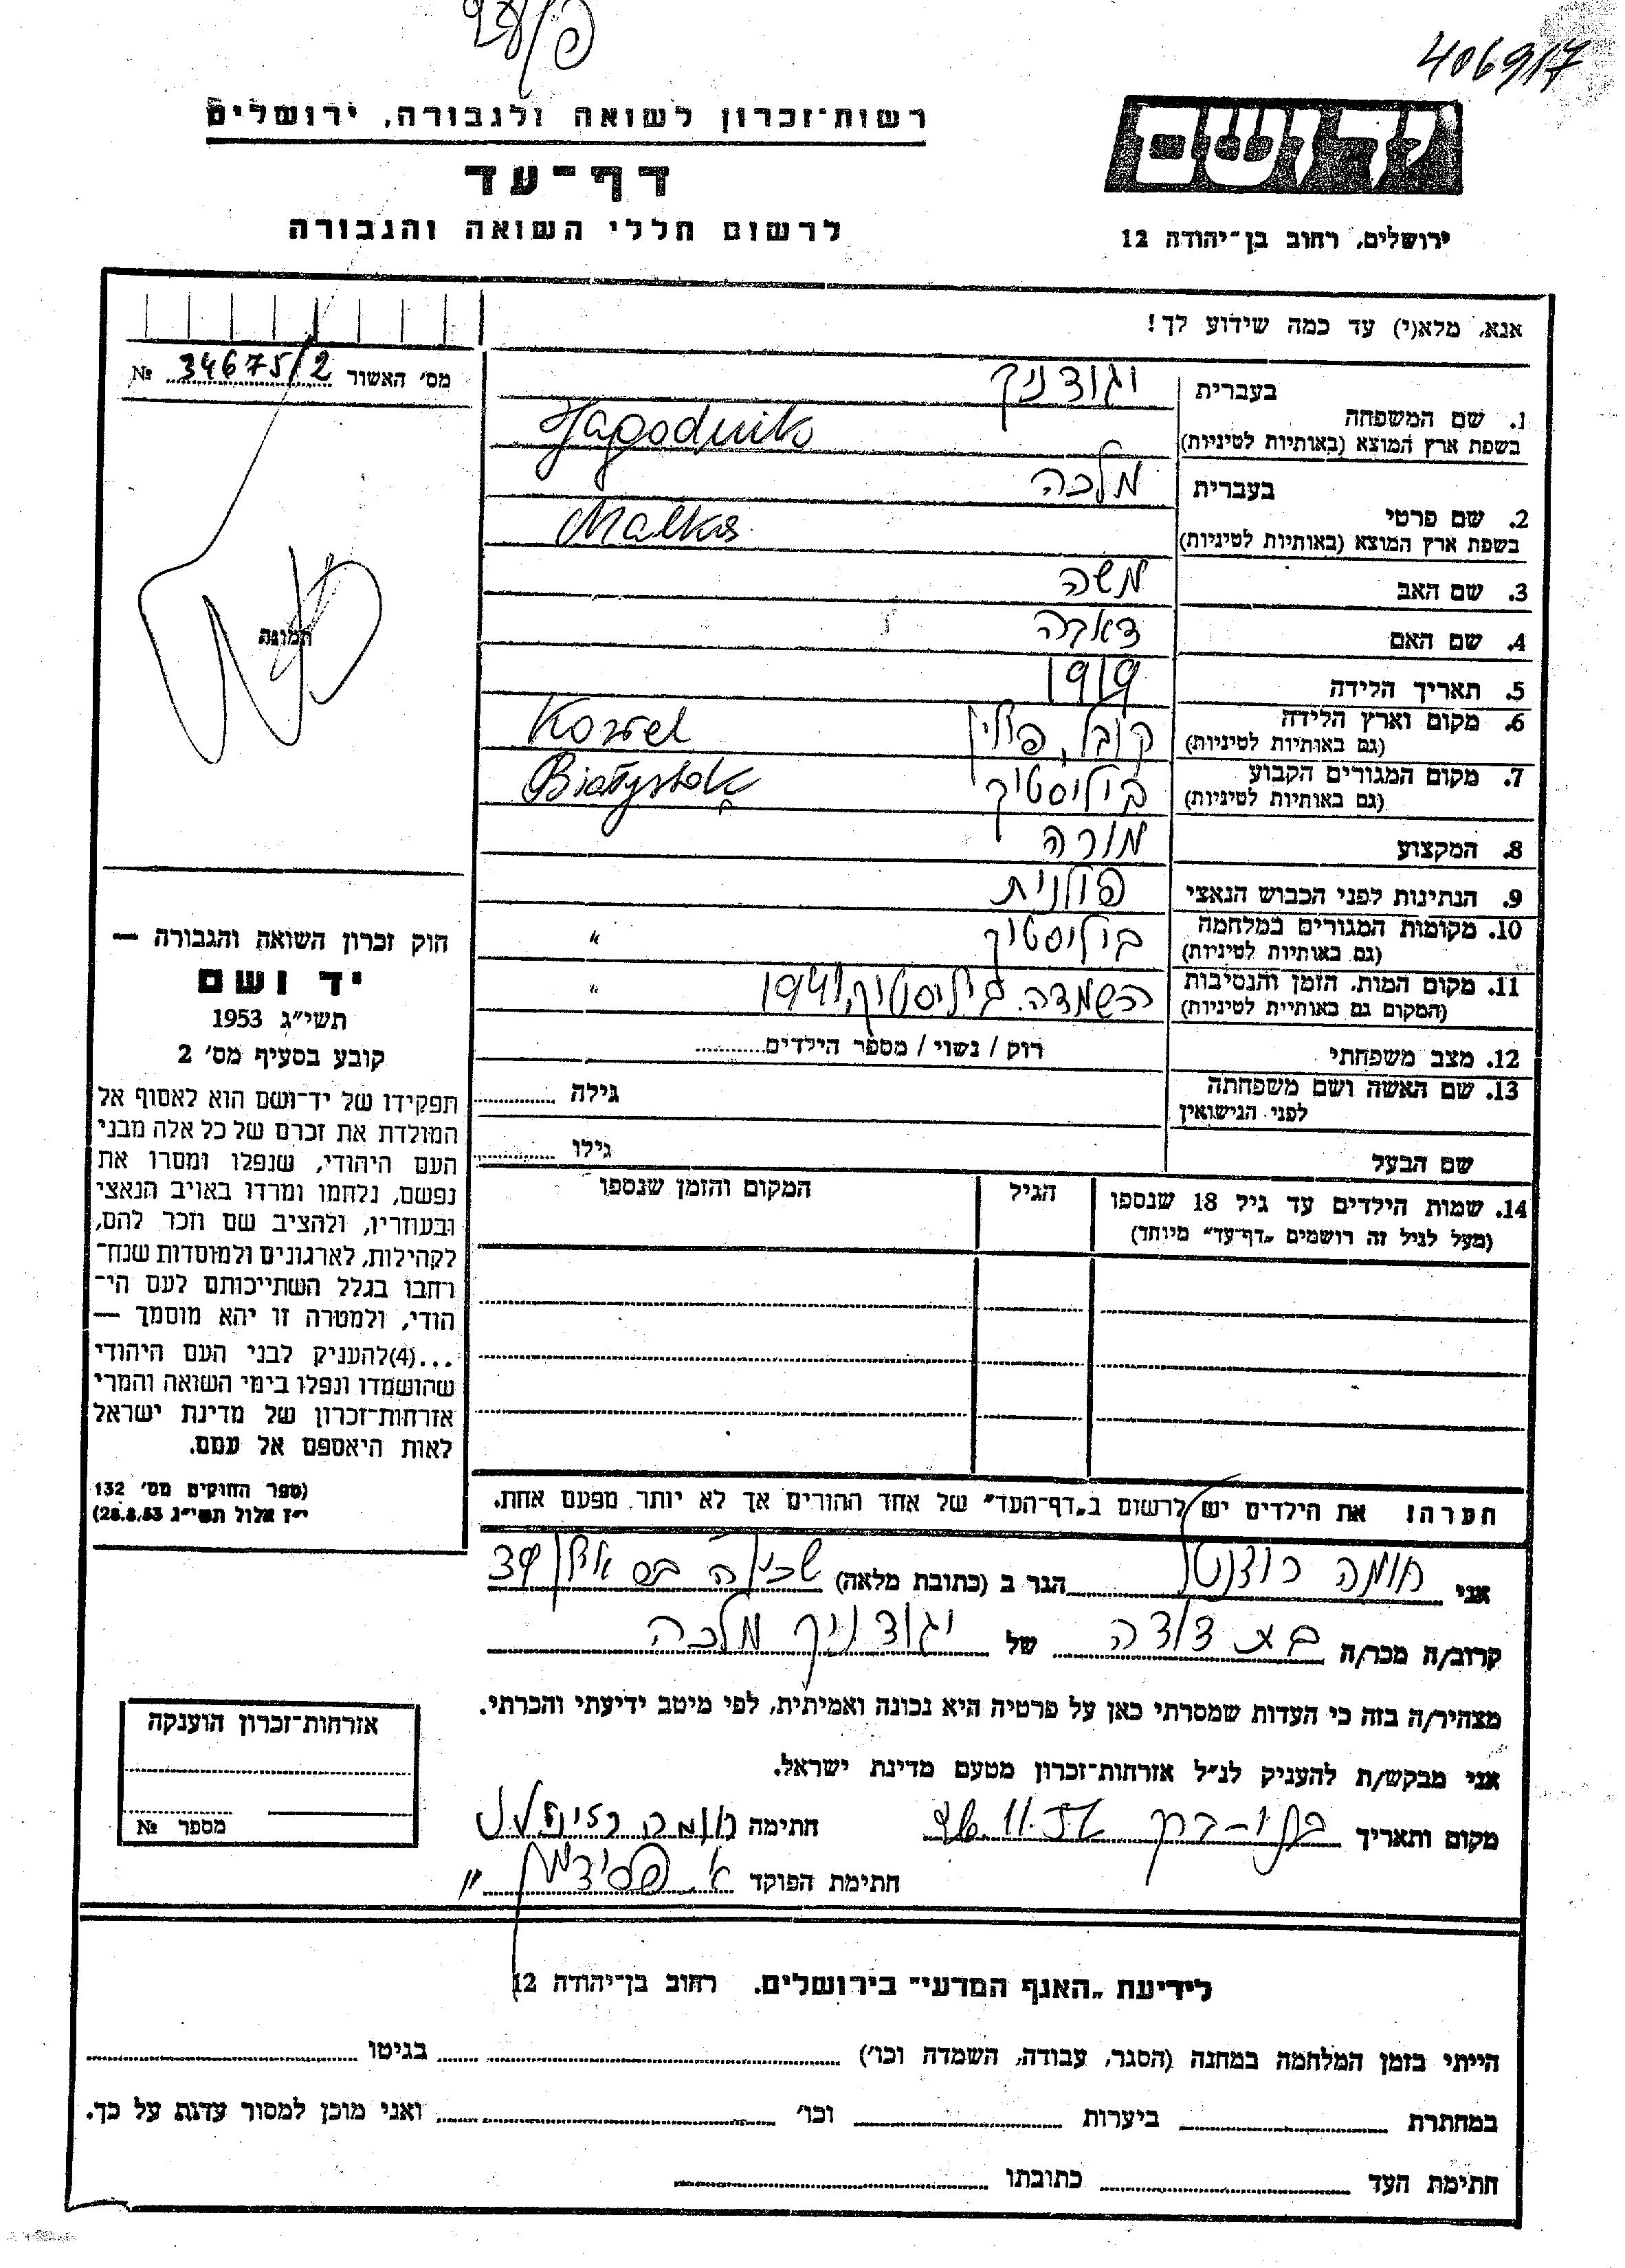 406917
רשות־זכרון לשואה ולגבורה, ירושלים
יד ושם
דף־עד
לרשום חללי השואה והגבורה
ירושלים, רחוב בן־יהודה 12
אנא, מלא(י) עד כמה שידוע לך!
מס׳ האשור 34675/2 №
תמונה
1. שם המשפחה בעברית יגודניק
בשפת ארץ המוצא (באותיות לטיניות) Jagodnik
2. שם פרטי בעברית מלכה
בשפת ארץ המוצא (באותיות לטיניות) Malka
3. שם האב משה
4. שם האם
5. תאריך הלידה 1919
6. מקום וארץ הלידה קובל, פולין Kowel
(גם באותיות לטיניות)
7. מקום המגורים הקבוע ביליסטוק Białystok
(גם באותיות לטיניות)
8. המקצוע מורה
9. הנתינות לפני הכבוש הנאצי פולנית
10. מקומות המגורים במלחמה ביליסטוק "
(גם באותיות לטיניות)
11. מקום המות, הזמן והנסיבות ההשמדה. ביליסטוק, 1941 "
(המקום גם באותיות לטיניות)
12. מצב משפחתי רוק / נשוי / מספר הילדים
13. שם האשה ושם משפחתה גילה
לפני הנישואין
שם הבעל גילו
14. שמות הילדים עד גיל 18 שנספו הגיל המקום והזמן שנספו
(מעל לגיל זה רושמים „דף־עד" מיוחד)
חוק זכרון השואה והגבורה —
יד ושם
תשי״ג 1953
קובע בסעיף מס׳ 2
תפקידו של יד־ושם הוא לאסוף אל
המולדת את זכרם של כל אלה מבני
העם היהודי, שנפלו ומסרו את
נפשם, נלחמו ומרדו באויב הנאצי
ובעוזריו, ולהציב שם וזכר להם,
לקהילות, לארגונים ולמוסדות שנח־
רחבו בגלל השתייכותם לעם הי־
הודי, ולמטרה זו יהא מוסמך —
...(4)להעניק לבני העם היהודי
שהושמדו ונפלו בימי השואה והמרי
אזרחות־זכרון של מדינת ישראל
לאות היאספם אל עמם.
(ספר החוקים מס׳ 132
י״ז אלול תשי״ג 28.8.53)
הערה! את הילדים יש לרשום ב„דף־העד" של אחד ההורים אך לא יותר מפעם אחת.
אני נחמה רוזנטל הגר ב (כתובת מלאה)
קרוב/ה מכר/ה בת דודה של יגודניק מלכה
מצהיר/ה בזה כי העדות שמסרתי כאן על פרטיה היא נכונה ואמיתית, לפי מיטב ידיעתי והכרתי.
אני מבקש/ת להעניק לנ״ל אזרחות־זכרון מטעם מדינת ישראל.
מקום ותאריך בני-ברק חתימה
חתימת הפוקד
אזרחות־זכרון הוענקה
מספר №
לידיעת „האגף המדעי" בירושלים. רחוב בן־יהודה 12
הייתי בזמן המלחמה במחנה (הסגר, עבודה, השמדה וכו׳) בגיטו
במחתרת ביערות וכו׳ ואני מוכן למסור עדות על כך.
חתימת העד כתובתו